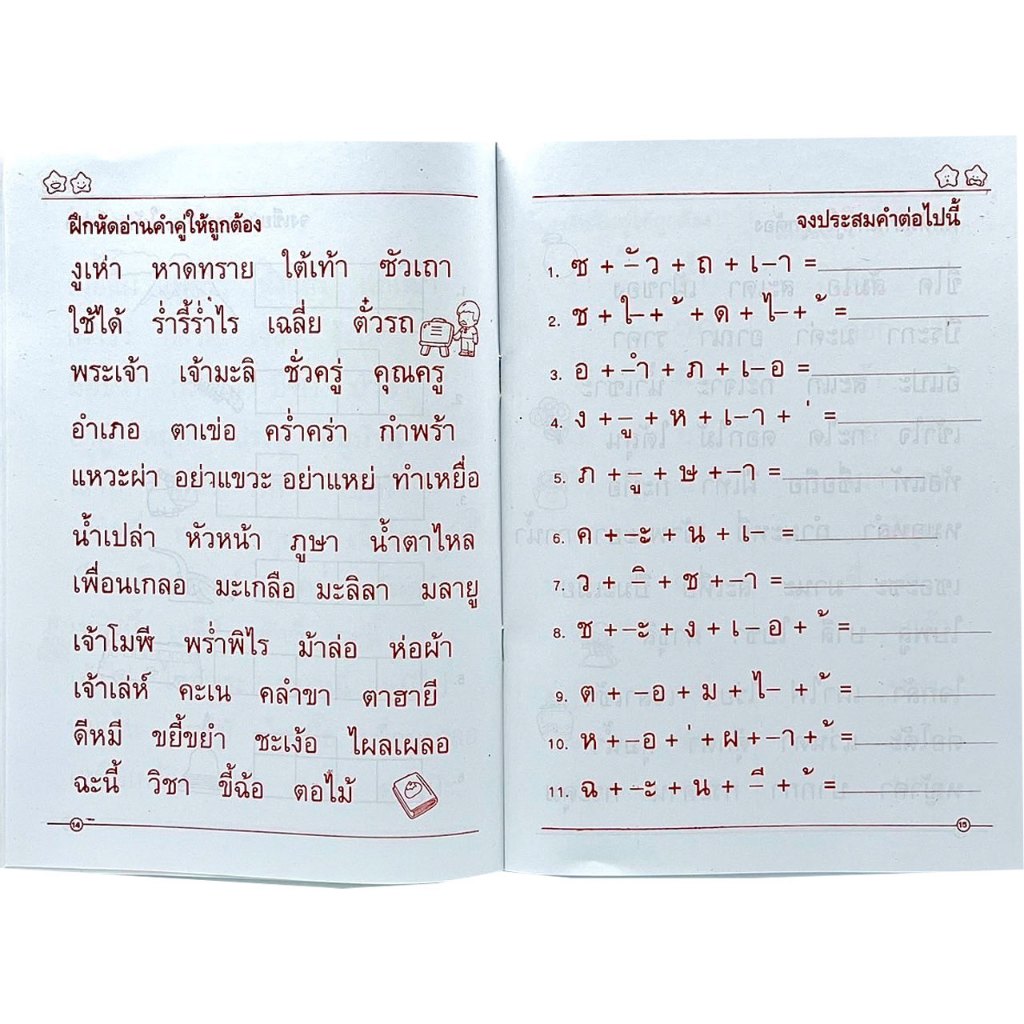 ฝึกหัดอ่านคำคู่ให้ถูกต้อง
งูเห่า หาดทราย ใต้เท้า ซัวเถา
ใช้ได้ ร่ำรี้ร่ำไร เฉลี่ย ตั๋วรถ
พระเจ้า เจ้ามะลิ ชั่วครู่ คุณครู
อำเภอ ตาเข่อ คร่ำคร่า กำพร้า
แหวะผ่า อย่าแขวะ อย่าแหย่ ทำเหยื่อ
น้ำเปล่า หัวหน้า ภูษา น้ำตาไหล
เพื่อนเกลอ มะเกลือ มะลิลา มลายู
เจ้าโมพี พร่ำพิไร ม้าล่อ ห่อผ้า
เจ้าเล่ห์ คะเน คลำขา ตาฮายี
ดีหมี ขยี้ขยำ ชะเง้อ ไผลเผลอ
ฉะนี้ วิชา ขี้ฉ้อ ตอไม้
14
จงประสมคำต่อไปนี้
1. ซ + –ัว + ถ + เ–า =
2. ช + ใ– + ้ + ด + ไ– + ้ =
3. อ + –ำ + ภ + เ–อ =
4. ง + –ู + ห + เ–า + ่ =
5. ภ + –ู + ษ + –า =
6. ค + –ะ + น + เ– =
7. ว + –ิ + ช + –า =
8. ช + –ะ + ง + เ–อ + ้ =
9. ต + –อ + ม + ไ– + ้ =
10. ห + –อ + ่ + ผ + –า + ้ =
11. ฉ + –ะ + น + –ี + ้ =
15